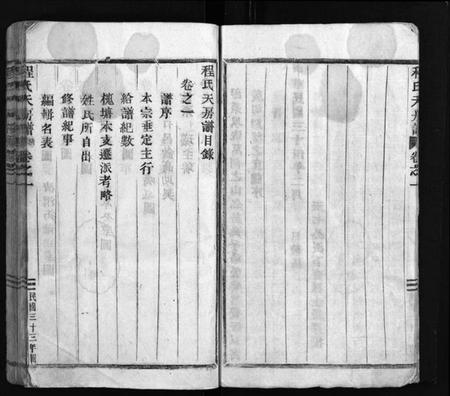 程氏天房譜 卷之一
程氏天房譜目錄
卷之一
譜序
本宗垂定主行
給譜紀數
槐塘本支遷派者略
姓氏所自出
修譜紀事
編輯名表
程氏天房譜 卷之一
民國三十三年